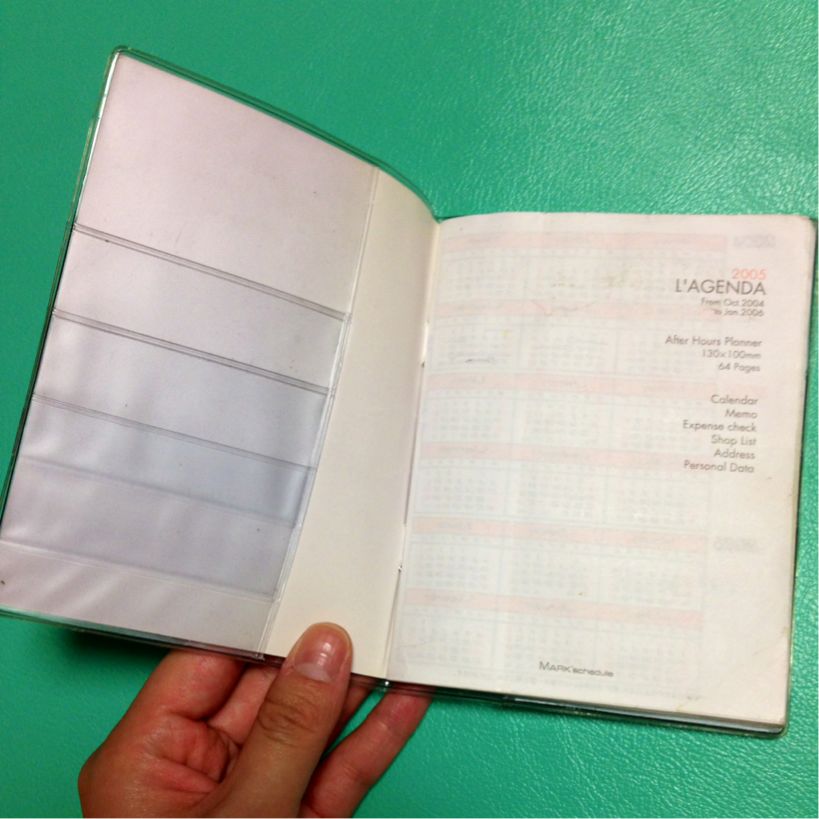 2005
L'AGENDA
From Oct.2004
to Jan.2006
After Hours Planner
130×100mm
64 Pages
Calendar
Memo
Expense check
Shop List
Address
Personal Data
MARK'schedule